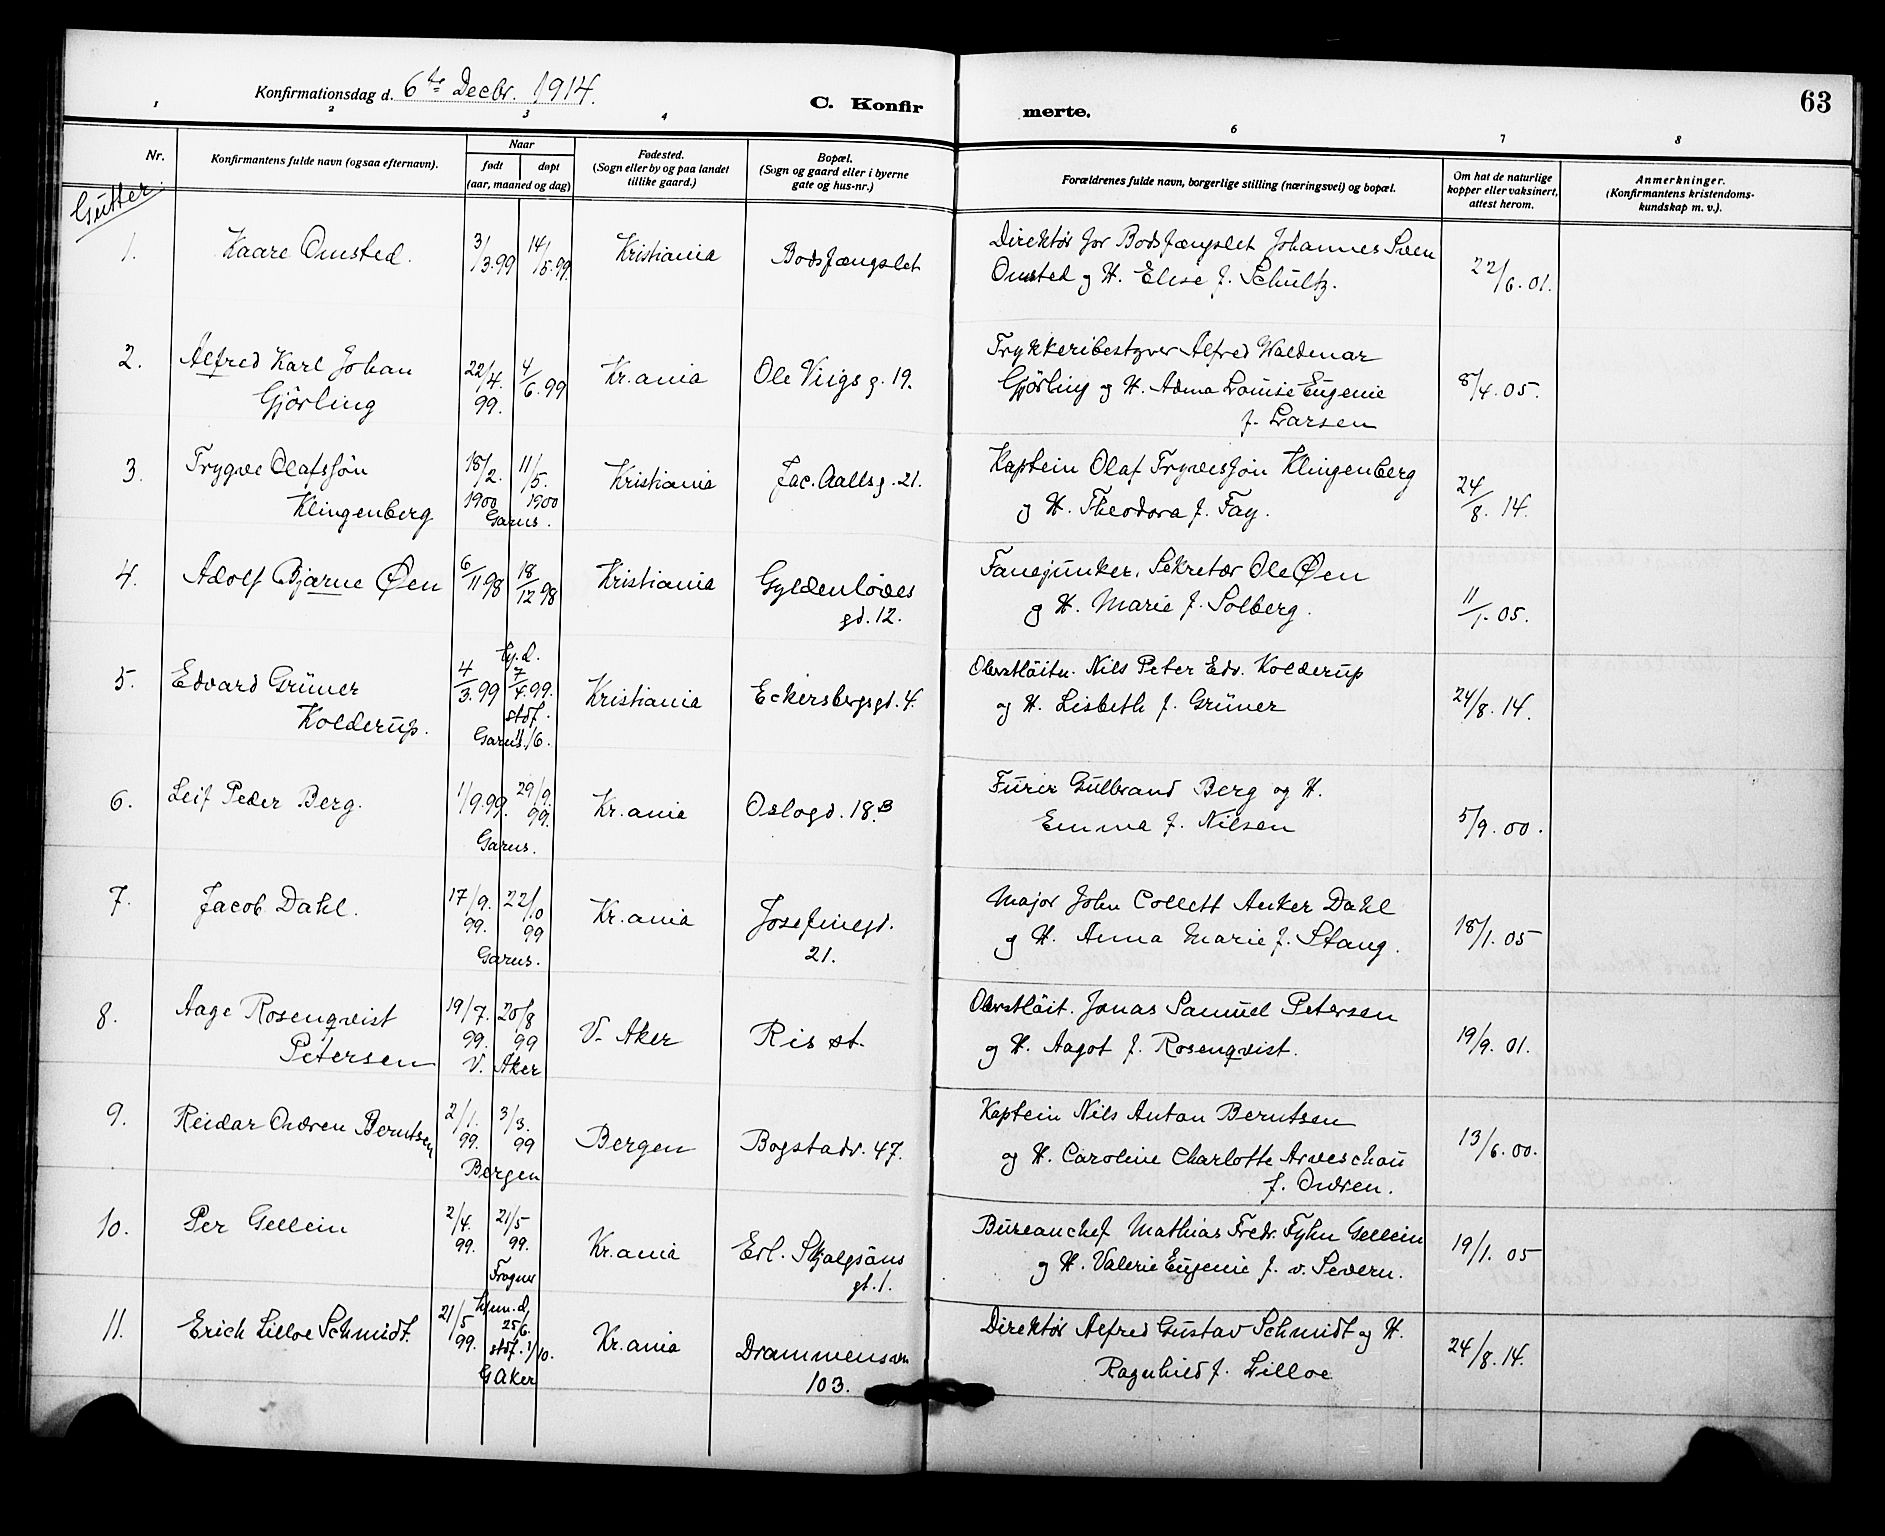 63
Konfirmationsdag d. 6te Decbr. 1914.
C. Konfir merte.
1 2 3 4 6 7 8
Nr.
Konfirmantens fulde navn (ogsaa efternavn).
Naar
født døpt
(aar, maaned og dag)
Fødested.
(Sogn eller by og paa landet
tillike gaard.)
Bopæl.
(Sogn og gaard eller i byerne
gate og hus-nr.)
Forældrenes fulde navn, borgerlige stilling (næringsvei) og bopæl.
Om hat de naturlige
kopper eller vaksinert,
attest herom.
Anmerkninger.
(Konfirmantens kristendoms-
kundskap m. v.).
Gutter.
1. Kaare Omsted. 3/3.99 14/5.99. Kristiania Bodsfængslet
Direktør for Bodsfængslet Johannes Sven
Omsted og H. Elise f. Schultz. 22/6.01.
2. Alfred Karl Johan
Gjørling 22/4. 99. 4/6.99 Kr.ania Ole Viigs g. 19.
Trykkeribestyrer Alfred Waldemar
Gjørling og H. Adma Louise Eugenie
f. Larsen 8/4.05.
3. Trygve Olafssøn
Klingenberg 18/2. 1900 11/5. 1900 Garns. Kristiania Jac. Aallsg. 21.
Kaptein Olaf Trygvessøn Klingenberg
og H. Theodora f. Fay. 24/8. 14.
4. Adolf Bjarne Øen 6/11 98 18/12 98 Kristiania Gyldenløves
gd. 12.
Fanejunker, Sekretær Ole Øen
og H. Marie f. Solberg. 11/1.05.
5. Edvard Grüner
Kolderup. 4/3.99 Hj.d. 7/4.99. stdf. 11/6. Garns. Kristiania Eckersbergsgt. 4.
Oberstløitn. Nils Peter Edv. Kolderup
og H. Lisbeth f. Grüner 24/8.14.
6. Leif Peder Berg. 1/9.99. 29/9. 99. Garns. Kr.ania Oslogd. 18.B
Furer Gulbrand Berg og H.
Emma f. Nilsen 5/9.00.
7. Jacob Dahl. 17/9. 99. 22/10 99 Garns. Kr.ania Josefinegd.
21.
Major John Collett Anker Dahl
og H. Anna Marie f. Stang. 18/1.05
8. Aage Rosenqvist
Petersen 19/7. 99. 20/8 99 V. Aker V. Aker Ris st.
Oberstløit. Jonas Samuel Petersen
og H. Aagot f. Rosenqvist. 19/9.01.
9. Reidar Ondren Berntsen 2/1. 99. 3/3. 99 Bergen Bergen Bogstadv. 47.
Kaptein Nils Anton Berntsen
og H. Caroline Charlotte Arveschou
f. Ondren. 13/6.00.
10. Per Gellein 2/4. 99. 21/5 99. Frogner Kr.ania Erl. Skjalgsøns
gt. 1.
Bureauchef Mathias Fredr. Fyhn Gellein
og H. Valerie Eugenie f. v. Severn. 19/1.05
11. Erich Lilloe Schmidt. 21/5 99. Hjem.d. 25/6. stdf. 1/10. G Aker Kr.ania Drammensvn
103.
Direktør Alfred Gustav Schmidt og H.
Ragnhild f. Lilloe 24/8.14.